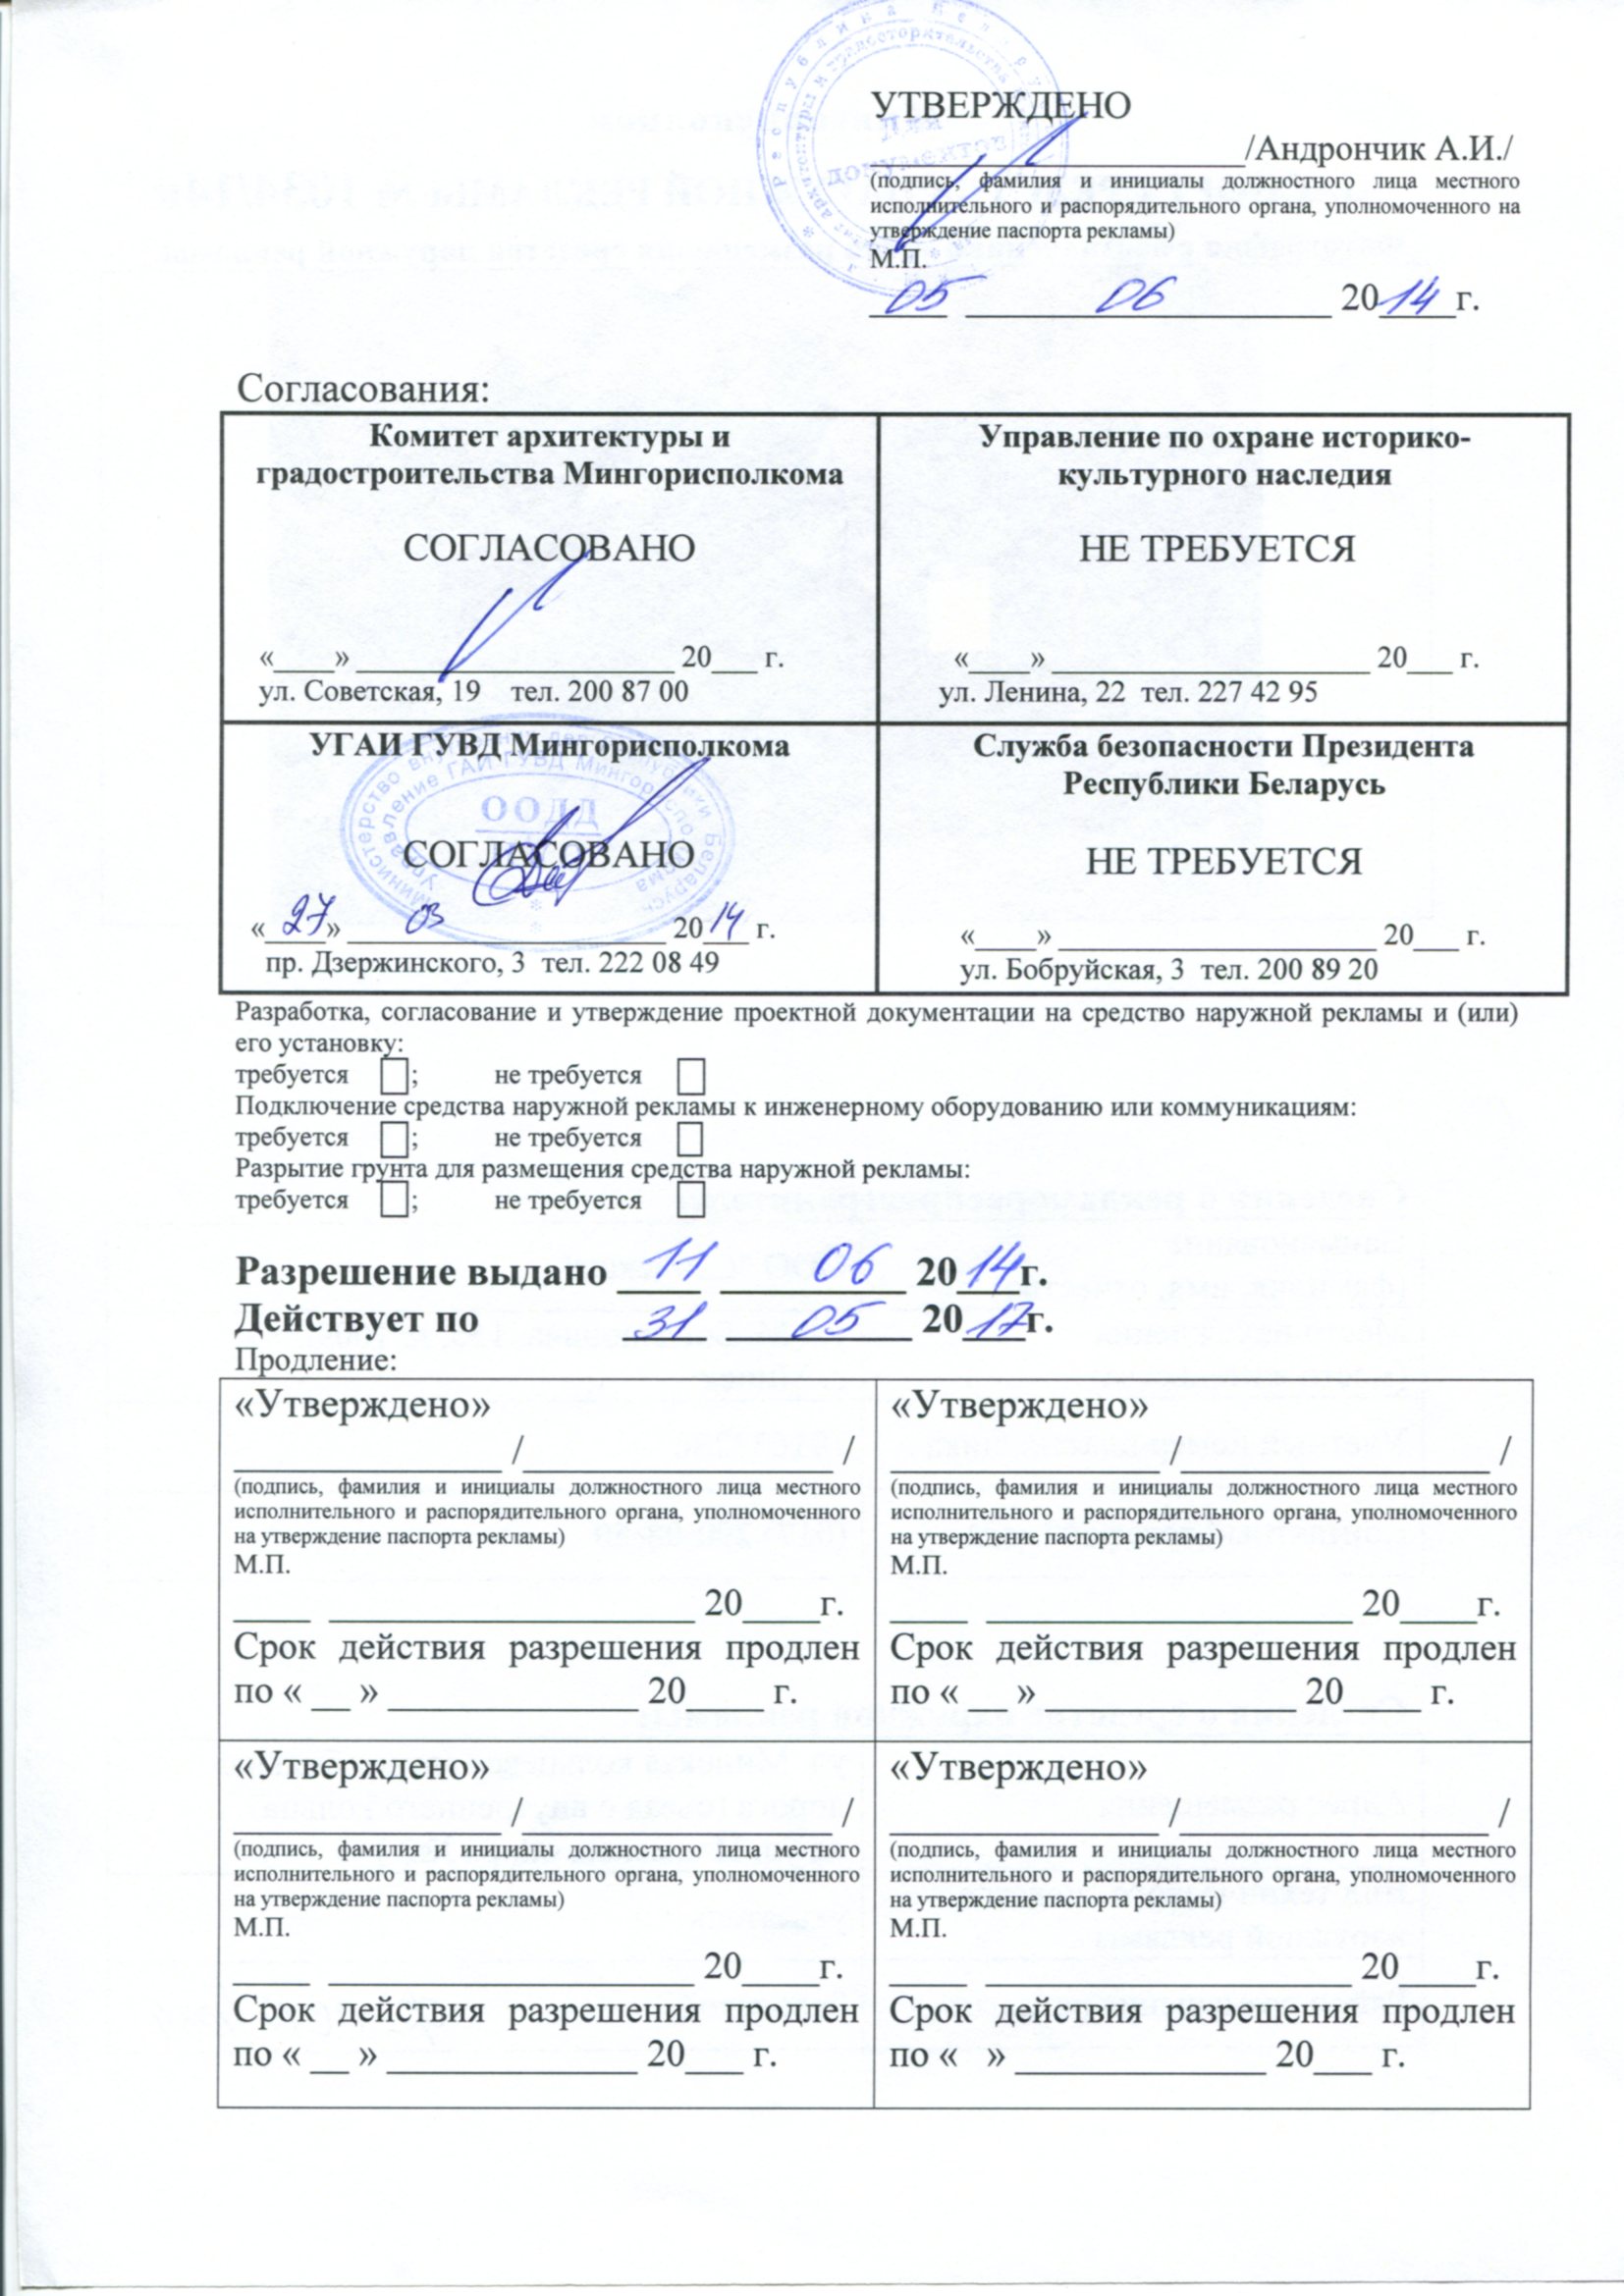 УТВЕРЖДЕНО
____________________/Андрончик А.И./
(подпись, фамилия и инициалы должностного лица местного
исполнительного и распорядительного органа, уполномоченного на
утверждение паспорта рекламы)
М.П.
05 06 2014г.
Для документов
Согласования:
Комитет архитектуры и
градостроительства Мингорисполкома
СОГЛАСОВАНО
«____» ____________________ 20___ г.
ул. Советская, 19 тел. 200 87 00
Управление по охране историко-
культурного наследия
НЕ ТРЕБУЕТСЯ
«____» ____________________ 20___ г.
ул. Ленина, 22 тел. 227 42 95
УГАИ ГУВД Мингорисполкома
Министерство внутренних дел Республики Беларусь
Управление ГАИ ГУВД Мингорисполкома
ООДД
СОГЛАСОВАНО
«27» 03 2014 г.
пр. Дзержинского, 3 тел. 222 08 49
Служба безопасности Президента
Республики Беларусь
НЕ ТРЕБУЕТСЯ
«____» ____________________ 20___ г.
ул. Бобруйская, 3 тел. 200 89 20
Разработка, согласование и утверждение проектной документации на средство наружной рекламы и (или)
его установку:
требуется ; не требуется
Подключение средства наружной рекламы к инженерному оборудованию или коммуникациям:
требуется ; не требуется
Разрытие грунта для размещения средства наружной рекламы:
требуется ; не требуется
Разрешение выдано 11 06 2014г.
Действует по 31 05 2017г.
Продление:
«Утверждено»
______________ /________________ /
(подпись, фамилия и инициалы должностного лица местного
исполнительного и распорядительного органа, уполномоченного
на утверждение паспорта рекламы)
М.П.
____ ___________________ 20____г.
Срок действия разрешения продлен
по « __ » _____________ 20____ г.
«Утверждено»
______________ /________________ /
(подпись, фамилия и инициалы должностного лица местного
исполнительного и распорядительного органа, уполномоченного
на утверждение паспорта рекламы)
М.П.
____ ___________________ 20____г.
Срок действия разрешения продлен
по « __ » _____________ 20____ г.
«Утверждено»
______________ /________________ /
(подпись, фамилия и инициалы должностного лица местного
исполнительного и распорядительного органа, уполномоченного
на утверждение паспорта рекламы)
М.П.
____ ___________________ 20____г.
Срок действия разрешения продлен
по « __ » _____________ 20___ г.
«Утверждено»
______________ /________________ /
(подпись, фамилия и инициалы должностного лица местного
исполнительного и распорядительного органа, уполномоченного
на утверждение паспорта рекламы)
М.П.
____ ___________________ 20____г.
Срок действия разрешения продлен
по « » _____________ 20___ г.